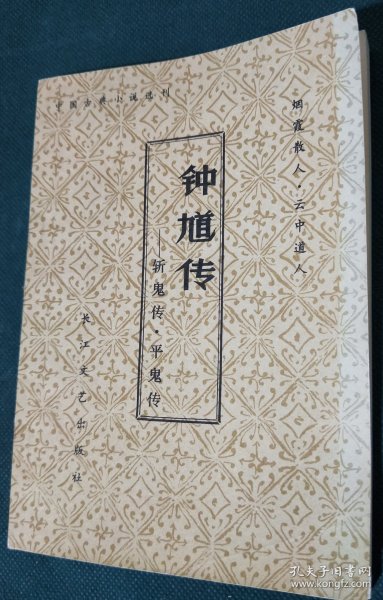 中国古典小说选刊
烟霞散人·云中道人
钟馗传
——斩鬼传·平鬼传
长江文艺出版社
孔夫子旧书网
www.kongfz.com